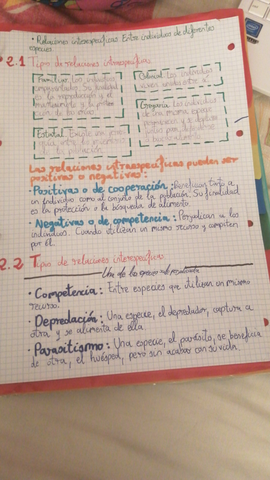 • Relaciones interespecíficas: Entre individuos de diferentes
especies.
2.1 Tipos de relaciones intraespecíficas
Familiar: Los individuos
emparentados. Su finalidad
es la reproducción y el
y la protec-
ción de
Colonial: Los individuos
viven unidos entre sí.
Gregaria: Los individuos
de una misma especie
para defenderse
Estatal: Existe
Las relaciones intraespecíficas pueden ser
positivas o negativas:
• Positivas o de cooperación: Benefician tanto a
un individuo como al conjunto de la población. Su finalidad
es la protección o la búsqueda de alimento.
• Negativas o de competencia: Perjudican a los
individuos. Cuando utilizan un mismo recurso y compiten
por él.
2.2 Tipos de relaciones interespecíficas
Una de las especies sale perjudicada
• Competencia: Entre especies que utilizan un mismo
recurso.
• Depredación: Una especie, el depredador, captura a
otra y se alimenta de ella.
• Parasitismo: Una especie, el parásito, se beneficia
de otra, el huésped, pero sin acabar con su vida.